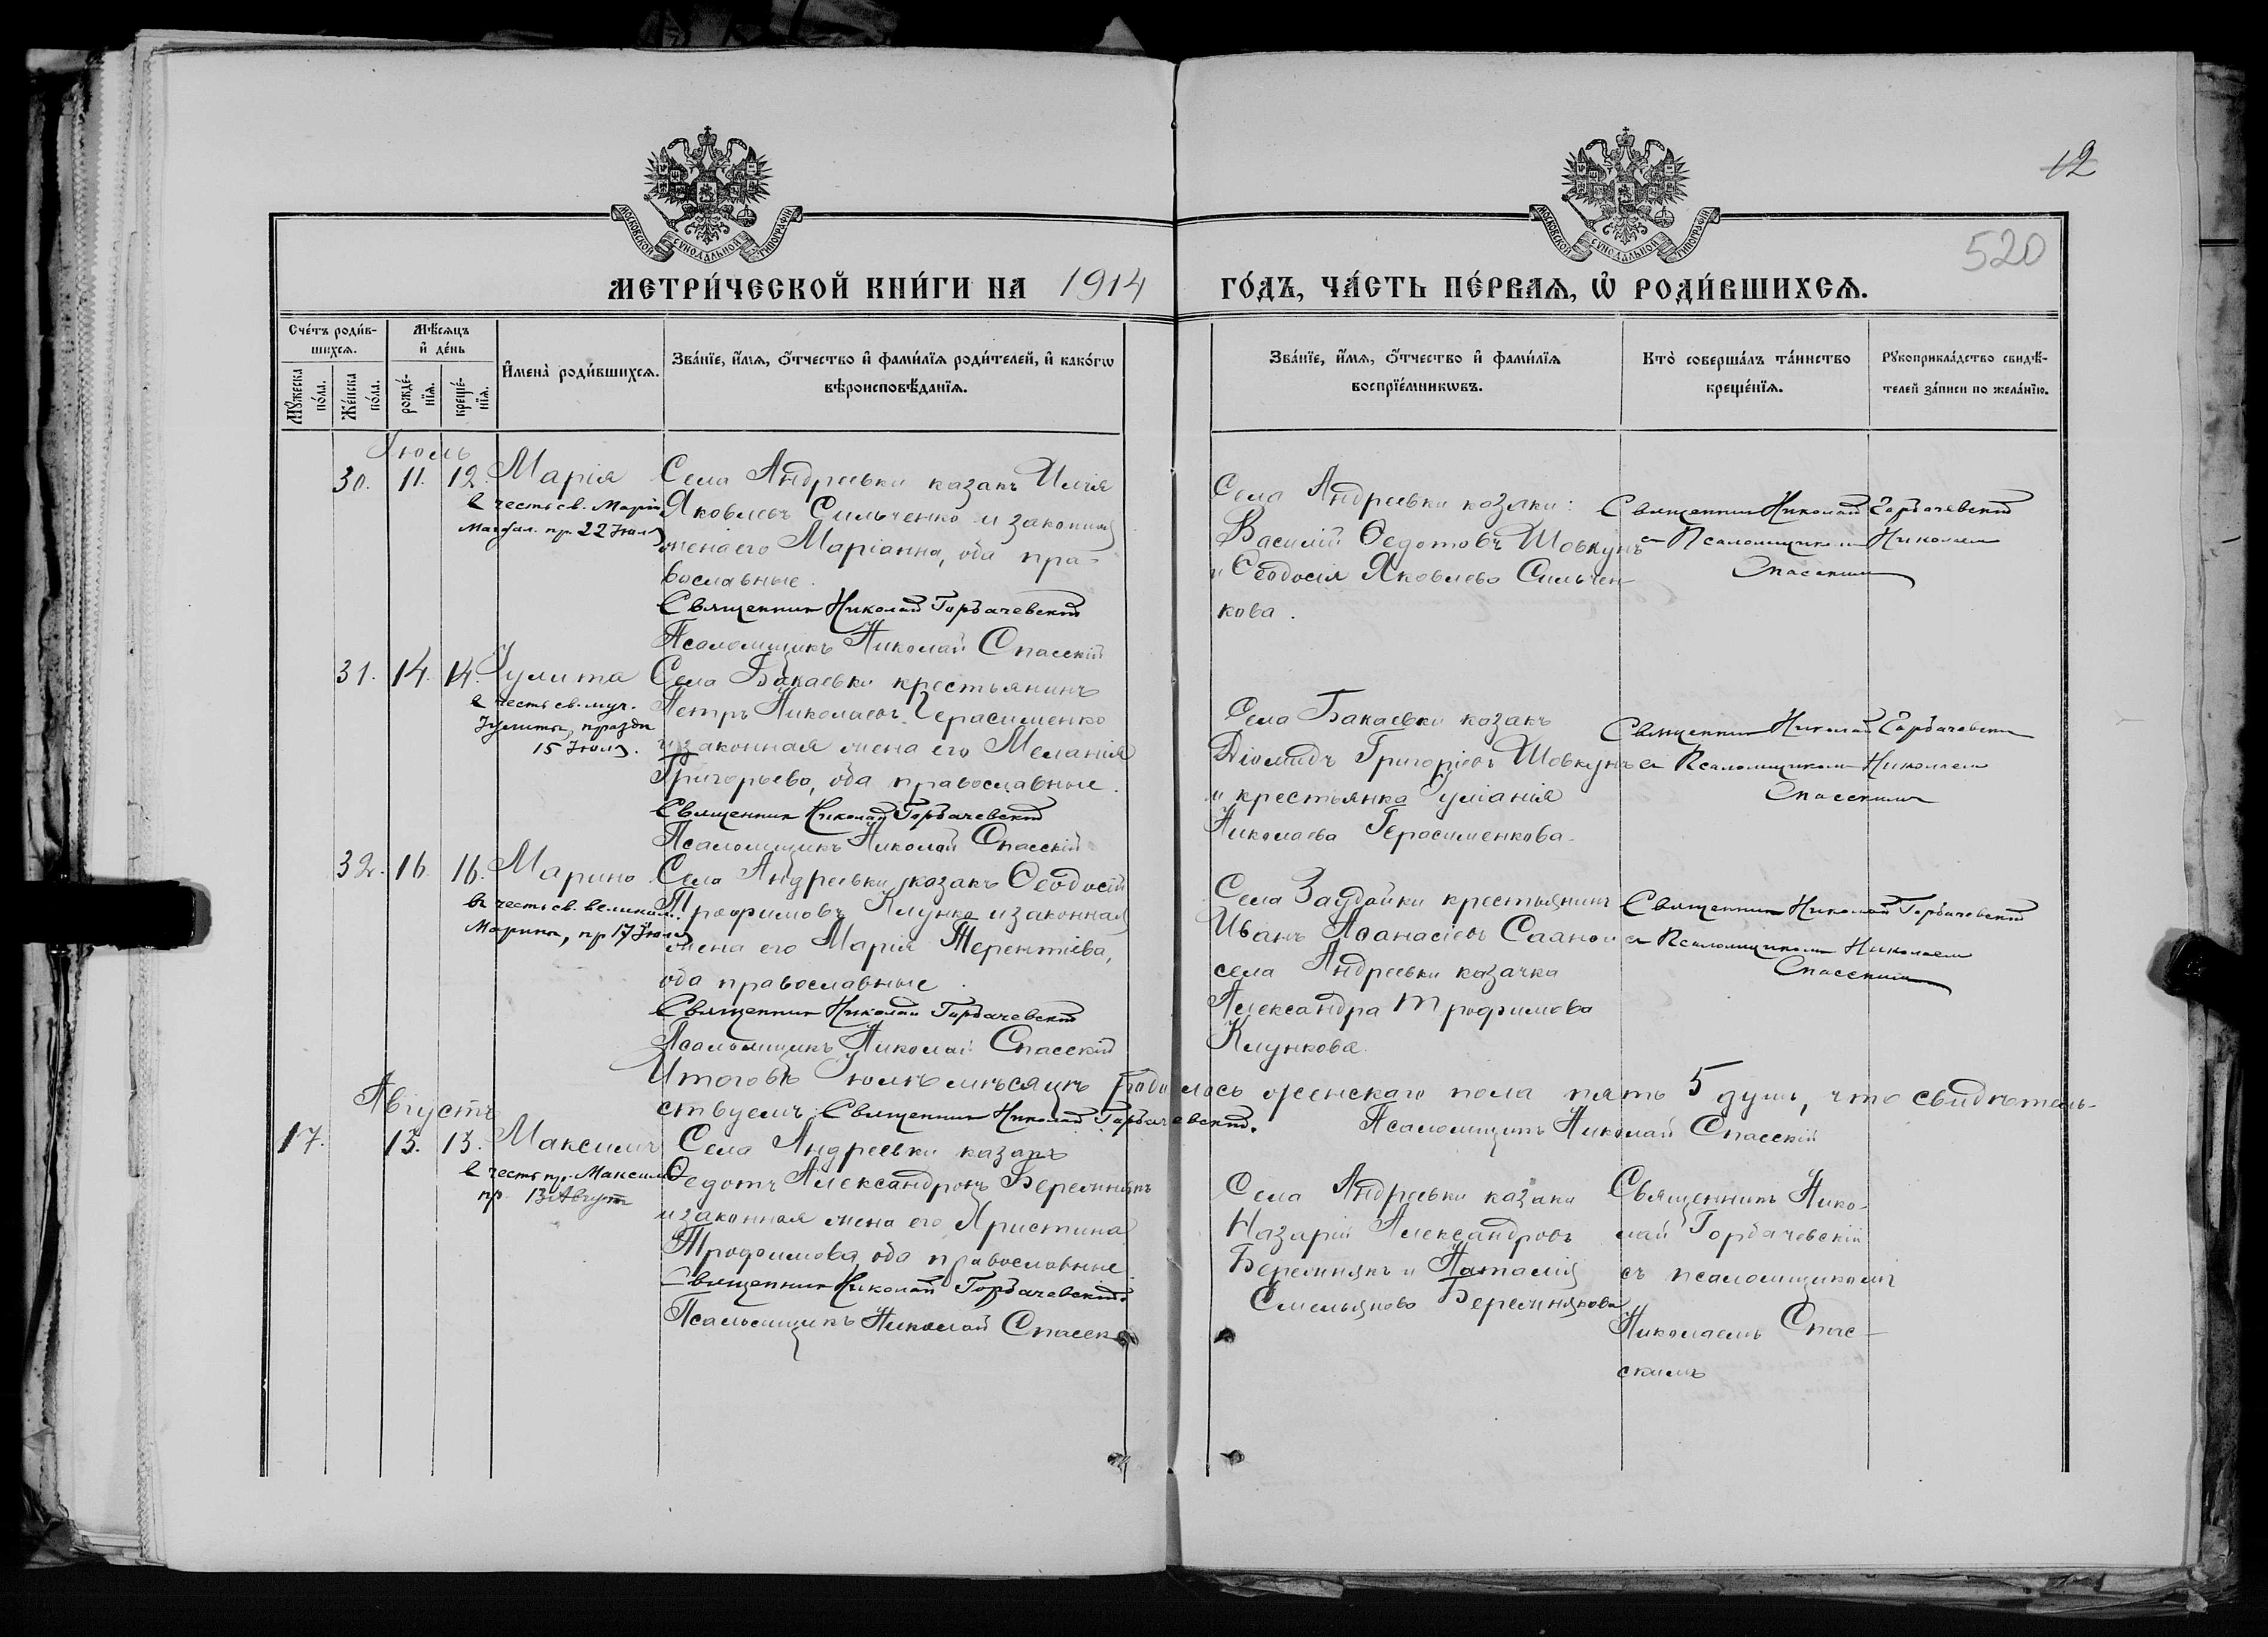 12
520
МОСКОВСКОЙ СѴНОДАЛЬНОЙ ТИПОГРАФІИ
МОСКОВСКОЙ СѴНОДАЛЬНОЙ ТИПОГРАФІИ
МЕТРИ́ЧЕСКОЙ КНИ́ГИ НА 1914 ГО́ДЪ, ЧА́СТЬ ПЕ́РВАѦ, Ѡ҆ РОДИ́ВШИХСѦ.
Сче́тъ роди́в-
шихсѧ.
Мꙋ́жеска по́ла.
Же́нска по́ла.
Мѣ́сѧцъ
и҆ де́нь
рожде́-
нїѧ.
креще́-
нїѧ.
И҆мена̀ роди́вшихсѧ.
Зва́нїе, и҆́мѧ, ѻ҆́тчество и҆ фами́лїѧ роди́телей, и҆ како́гѡ
вѣроисповѣ́данїѧ.
Зва́нїе, и҆́мѧ, ѻ҆́тчество и҆ фами́лїѧ
воспрїе́мникѡвъ.
Кто̀ соверша́лъ та́инство
креще́нїѧ.
Рꙋкоприкла́дство свидѣ́-
телей за́писи по жела́нїю.
Іюль
30. 11. 12. Марія
в честь св. Маріи
Магдал. пр. 22 Іюля
Села Андреевки казакъ Илія
Яковлевъ Сильченко и законная
жена его Маріанна, оба пра-
вославные.
Священникъ Николай Горбачевскій
Псаломщикъ Николай Спасскій
Села Андреевки казаки:
Василій Ѳедотовъ Шовкунъ
и Ѳеодосія Яковлева Сильчен-
кова.
Священникъ Николай Горбачевскій
съ Псаломщикомъ Николаемъ
Спасскимъ
31. 14. 14. Іулита
в честь св. муч.
Іулиты, праздн
15 Іюля.
Села Бакаевки крестьянинъ
Петръ Николаевъ Герасименко
и законная жена его Меланія
Григорьева, оба православные.
Священникъ Николай Горбачевскій
Псаломщикъ Николай Спасскій
Села Бакаевки казакъ
Діомидъ Григоріевъ Шовкунъ
и крестьянка Іуліанія
Николаева Герасименкова.
Священникъ Николай Горбачевскій
съ Псаломщикомъ Николаемъ
Спасскимъ
32. 16. 16. Марина
въ честь св. великом.
Марины, пр 17 Іюля
Села Андреевки казакъ Ѳеодосій
Трофимовъ Клунко и законная
жена его Марія Терентіева,
оба православные.
Священникъ Николай Горбачевскій
Псаломщикъ Николай Спасскій
Села Заудайки крестьянинъ
Иванъ Аѳанасіевъ и
села Андреевки казачка
Александра Трофимова
Клункова.
Священникъ Николай Горбачевскій
съ Псаломщикомъ Николаемъ
Спасскимъ
Итого въ Іюлѣ мѣсяцѣ родилось женскаго пола пять 5 душъ, что свидѣтель-
ствуемъ: Священникъ Николай Горбачевскій.
Псаломщикъ Николай Спасскій
Августъ
17. 13. 13. Максимъ
в честь пр. Максима
пр. 13 Август
Села Андреевки казакъ
Ѳедотъ Александровъ Бережнякъ
и законная жена его Христина
Трофимова, оба православные
Священникъ Николай Горбачевскій
Псаломщикъ Николай Спасскій
Села Андреевки казаки
Назарій Александровъ
Бережнякъ и Наталія
Емельянова Бережнякова
Священникъ Нико-
лай Горбачевскій
съ псаломщикомъ
Николаемъ Спас-
скимъ